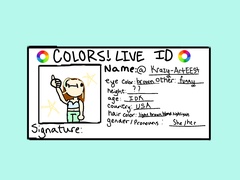 COLORS! LIVE ID
Name: @ Krazy-ArtEE5t
eye color: brown other: funny
height: ??
age: IDK
country: USA
hair color: light brown
gender/Pronouns: She/her
Signature: